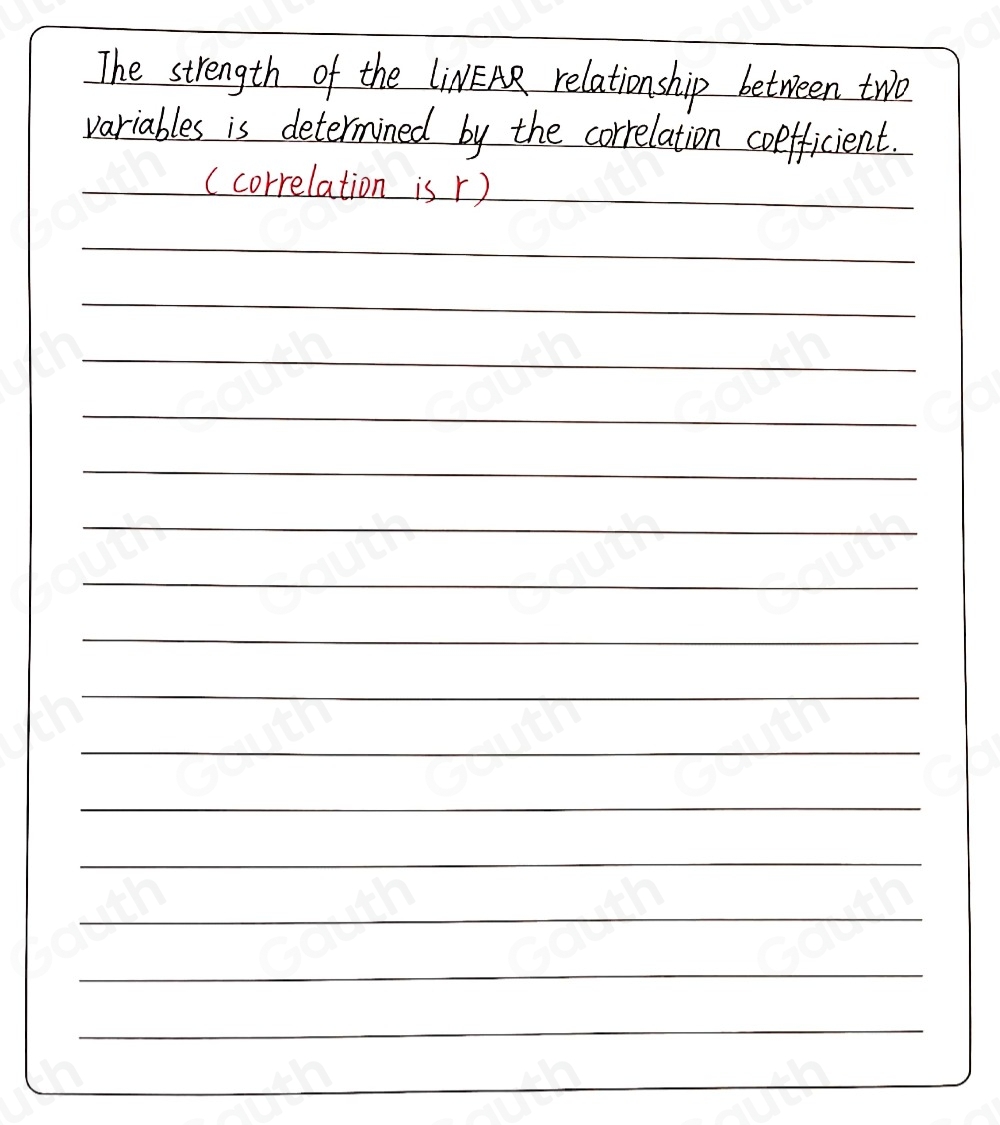 The strength of the LiNEAR relationship between two
variables is determined by the correlation coefficient.
(correlation is r)